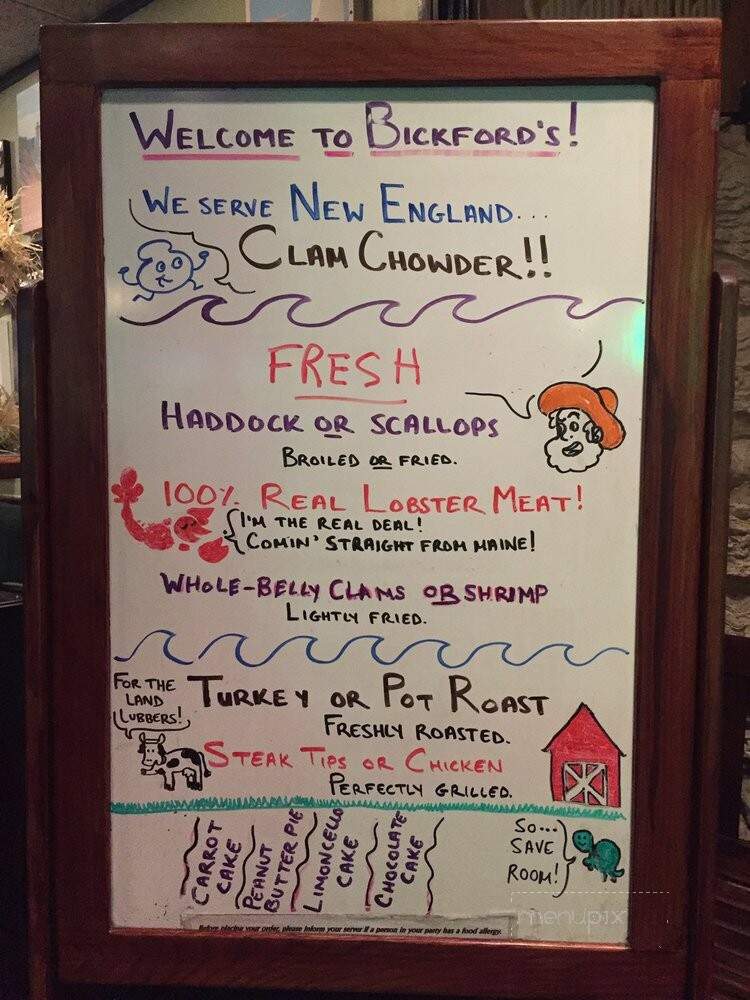 WELCOME TO BICKFORD'S!
WE SERVE NEW ENGLAND...
CLAM CHOWDER!!
FRESH
HADDOCK OR SCALLOPS
BROILED OR FRIED.
100% REAL LOBSTER MEAT!
I'M THE REAL DEAL!
COMIN' STRAIGHT FROM MAINE!
WHOLE-BELLY CLAMS OR SHRIMP
LIGHTLY FRIED.
FOR THE
LAND
LUBBERS!
TURKEY OR POT ROAST
FRESHLY ROASTED.
STEAK TIPS OR CHICKEN
PERFECTLY GRILLED.
CARROT
CAKE
PEANUT
BUTTER PIE
LIMONCELLO
CAKE
CHOCOLATE
CAKE
SO...
SAVE
ROOM!
menupix
Before placing your order, please inform your server if a person in your party has a food allergy.